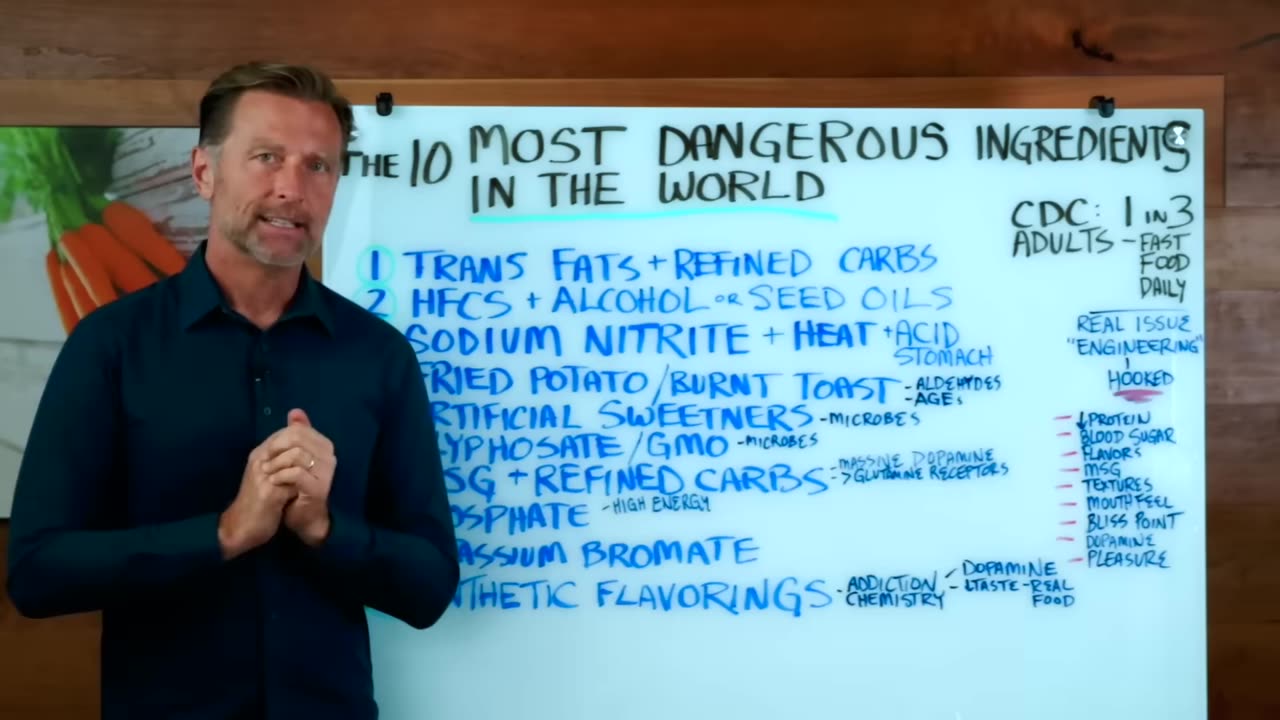 THE 10 MOST DANGEROUS INGREDIENTS
IN THE WORLD
CDC: 1 IN 3
ADULTS - FAST
FOOD
DAILY
1 TRANS FATS + REFINED CARBS
2 HFCS + ALCOHOL OR SEED OILS
SODIUM NITRITE + HEAT + ACID
STOMACH
FRIED POTATO / BURNT TOAST - ALDEHYDES
- AGEs
RTIFICIAL SWEETNERS - MICROBES
LYPHOSATE / GMO - MICROBES
SG + REFINED CARBS - MASSIVE DOPAMINE
-> GLUTAMINE RECEPTORS
OSPHATE - HIGH ENERGY
ASSIUM BROMATE
NTHETIC FLAVORINGS - ADDICTION - DOPAMINE
CHEMISTRY - ↓TASTE - REAL
FOOD
REAL ISSUE
"ENGINEERING"
HOOKED
- ↓PROTEIN
- BLOOD SUGAR
- FLAVORS
- MSG
- TEXTURES
- MOUTH FEEL
- BLISS POINT
- DOPAMINE
- PLEASURE